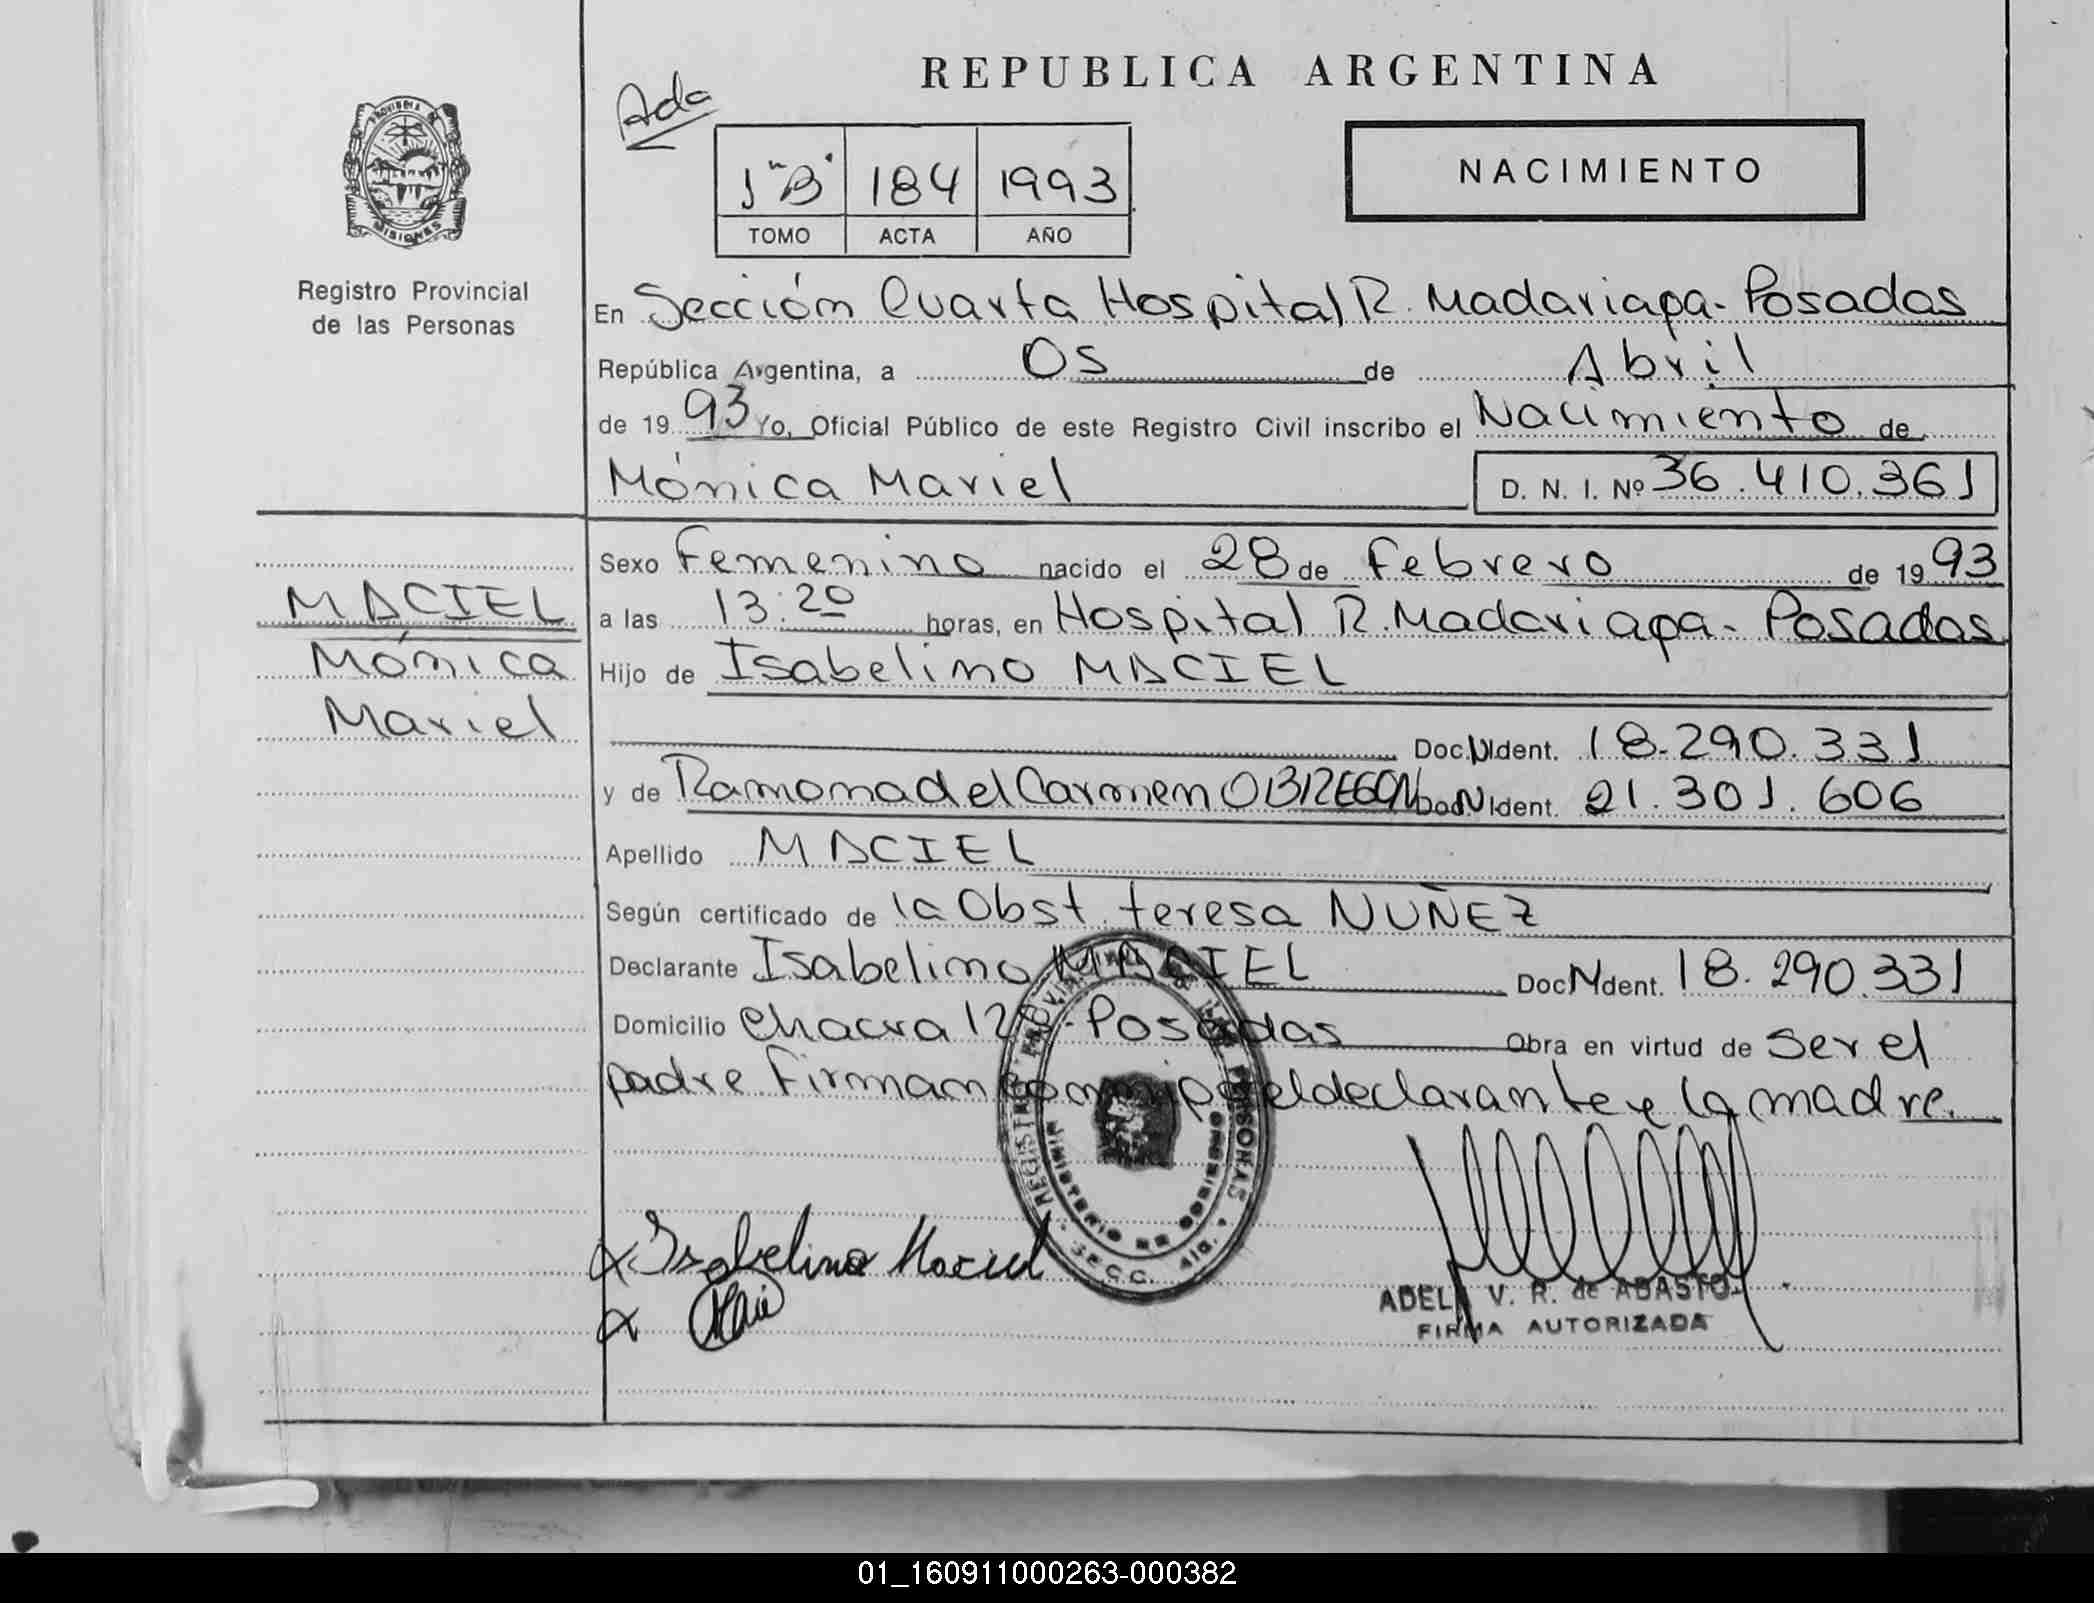 REPUBLICA ARGENTINA
Ada
1"B" 184 1993
TOMO ACTA AÑO
NACIMIENTO
PROVINCIA DE
MISIONES
Registro Provincial
de las Personas
En Sección Cuarta Hospital R. Madariaga - Posadas
República Argentina, a 05 de Abril
de 1993 Yo, Oficial Público de este Registro Civil inscribo el Nacimiento de
Mónica Mariel D. N. I. Nº 36.410.361
MACIEL
Mónica
Mariel
Sexo Femenino nacido el 28 de Febrero de 1993
a las 13:20 horas, en Hospital R. Madariaga - Posadas
Hijo de Isabelino MACIEL
Doc. N Ident. 18.290.331
y de Ramona del Carmen OBREGON Doc. N Ident. 21.301.606
Apellido MACIEL
Según certificado de la Obst. teresa NUÑEZ
Declarante Isabelino MACIEL Doc N Ident. 18.290.331
Domicilio Chacra - Posadas Obra en virtud de ser el
padre. Firman conmigo el declarante y la madre.
REGISTRO PROVINCIAL DE LAS PERSONAS
MINISTERIO DE GOBIERNO
SECC. 4ta.
x Isabelino Maciel
x
ADELA V. R. de ABASTO
FIRMA AUTORIZADA
01_160911000263-000382